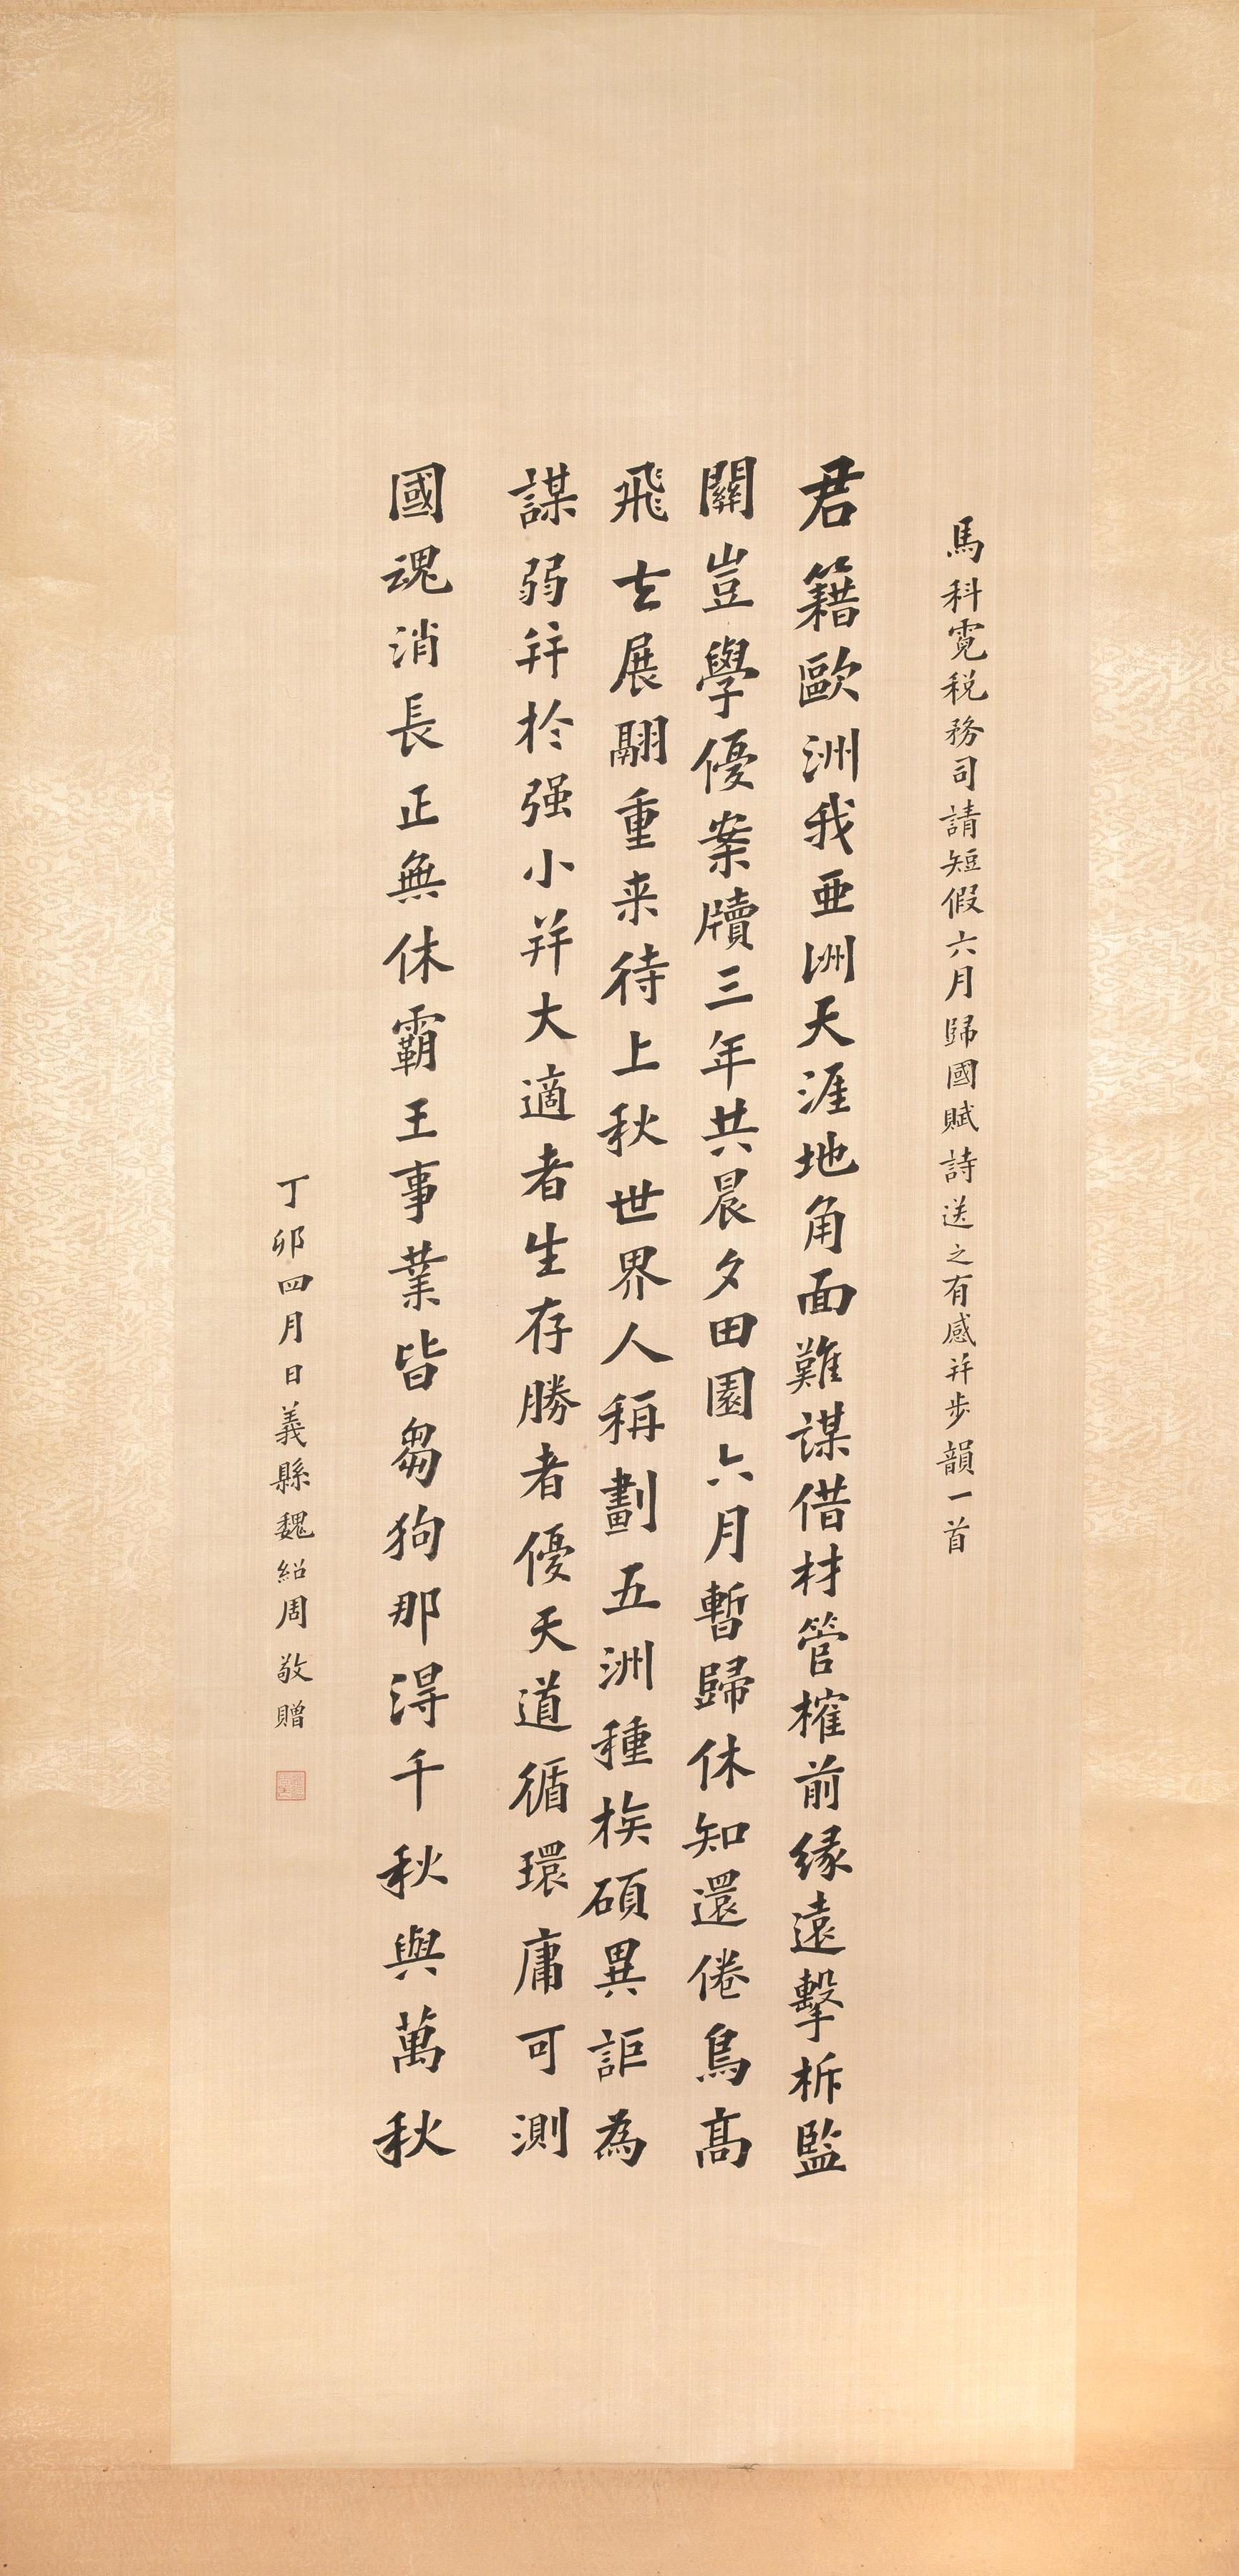 馬科霓税務司請短假六月歸國賦詩送之有感并步韻一首
君籍歐洲我亜洲天涯地角面難謀借材管榷前緣遠擊柝監
關豈學優案牘三年共晨夕田園六月暫歸休知還倦鳥高
飛去展翮重来待上秋世界人稱劃五洲種族碩異詎為
謀弱并於强小并大適者生存勝者優天道循環庸可測
國魂消長正無休霸王事業皆芻狗那得千秋與萬秋
丁卯四月日義縣魏紹周敬贈